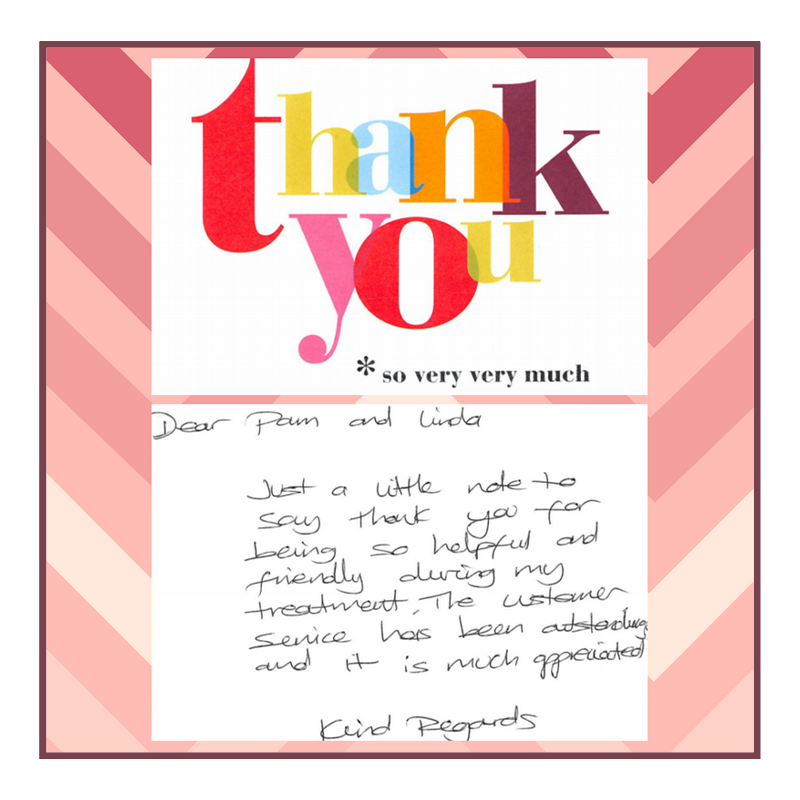 thank
you
* so very very much
Dear Pam and Linda
Just a little note to
say thank you for
being so helpful and
friendly during my
treatment. The customer
service has been outstanding
and it is much appreciated
Kind Regards